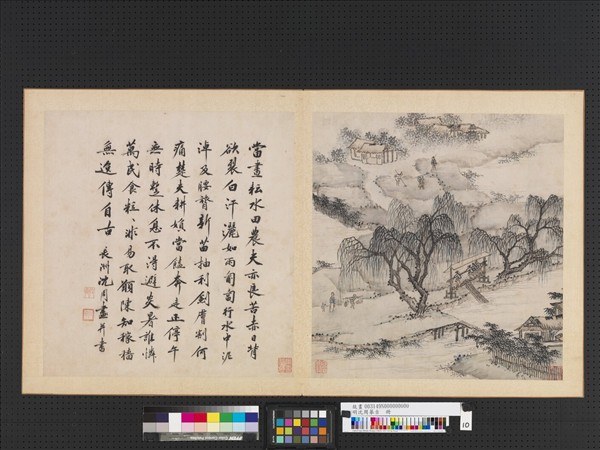 當晝耘水田農夫亦良苦赤日背
欲裂白汗灑如雨匍匐行水中泥
淖及腰膂新苗抽利劍膚割何
痛楚夫耕婦當饁奔走正停午
無時暫休息不得避炎暑誰憐
萬民食粒粒非易取願陳知稼穡
無逸傳自古 長洲沈周畫并書
故畫
明沈周 冊
10